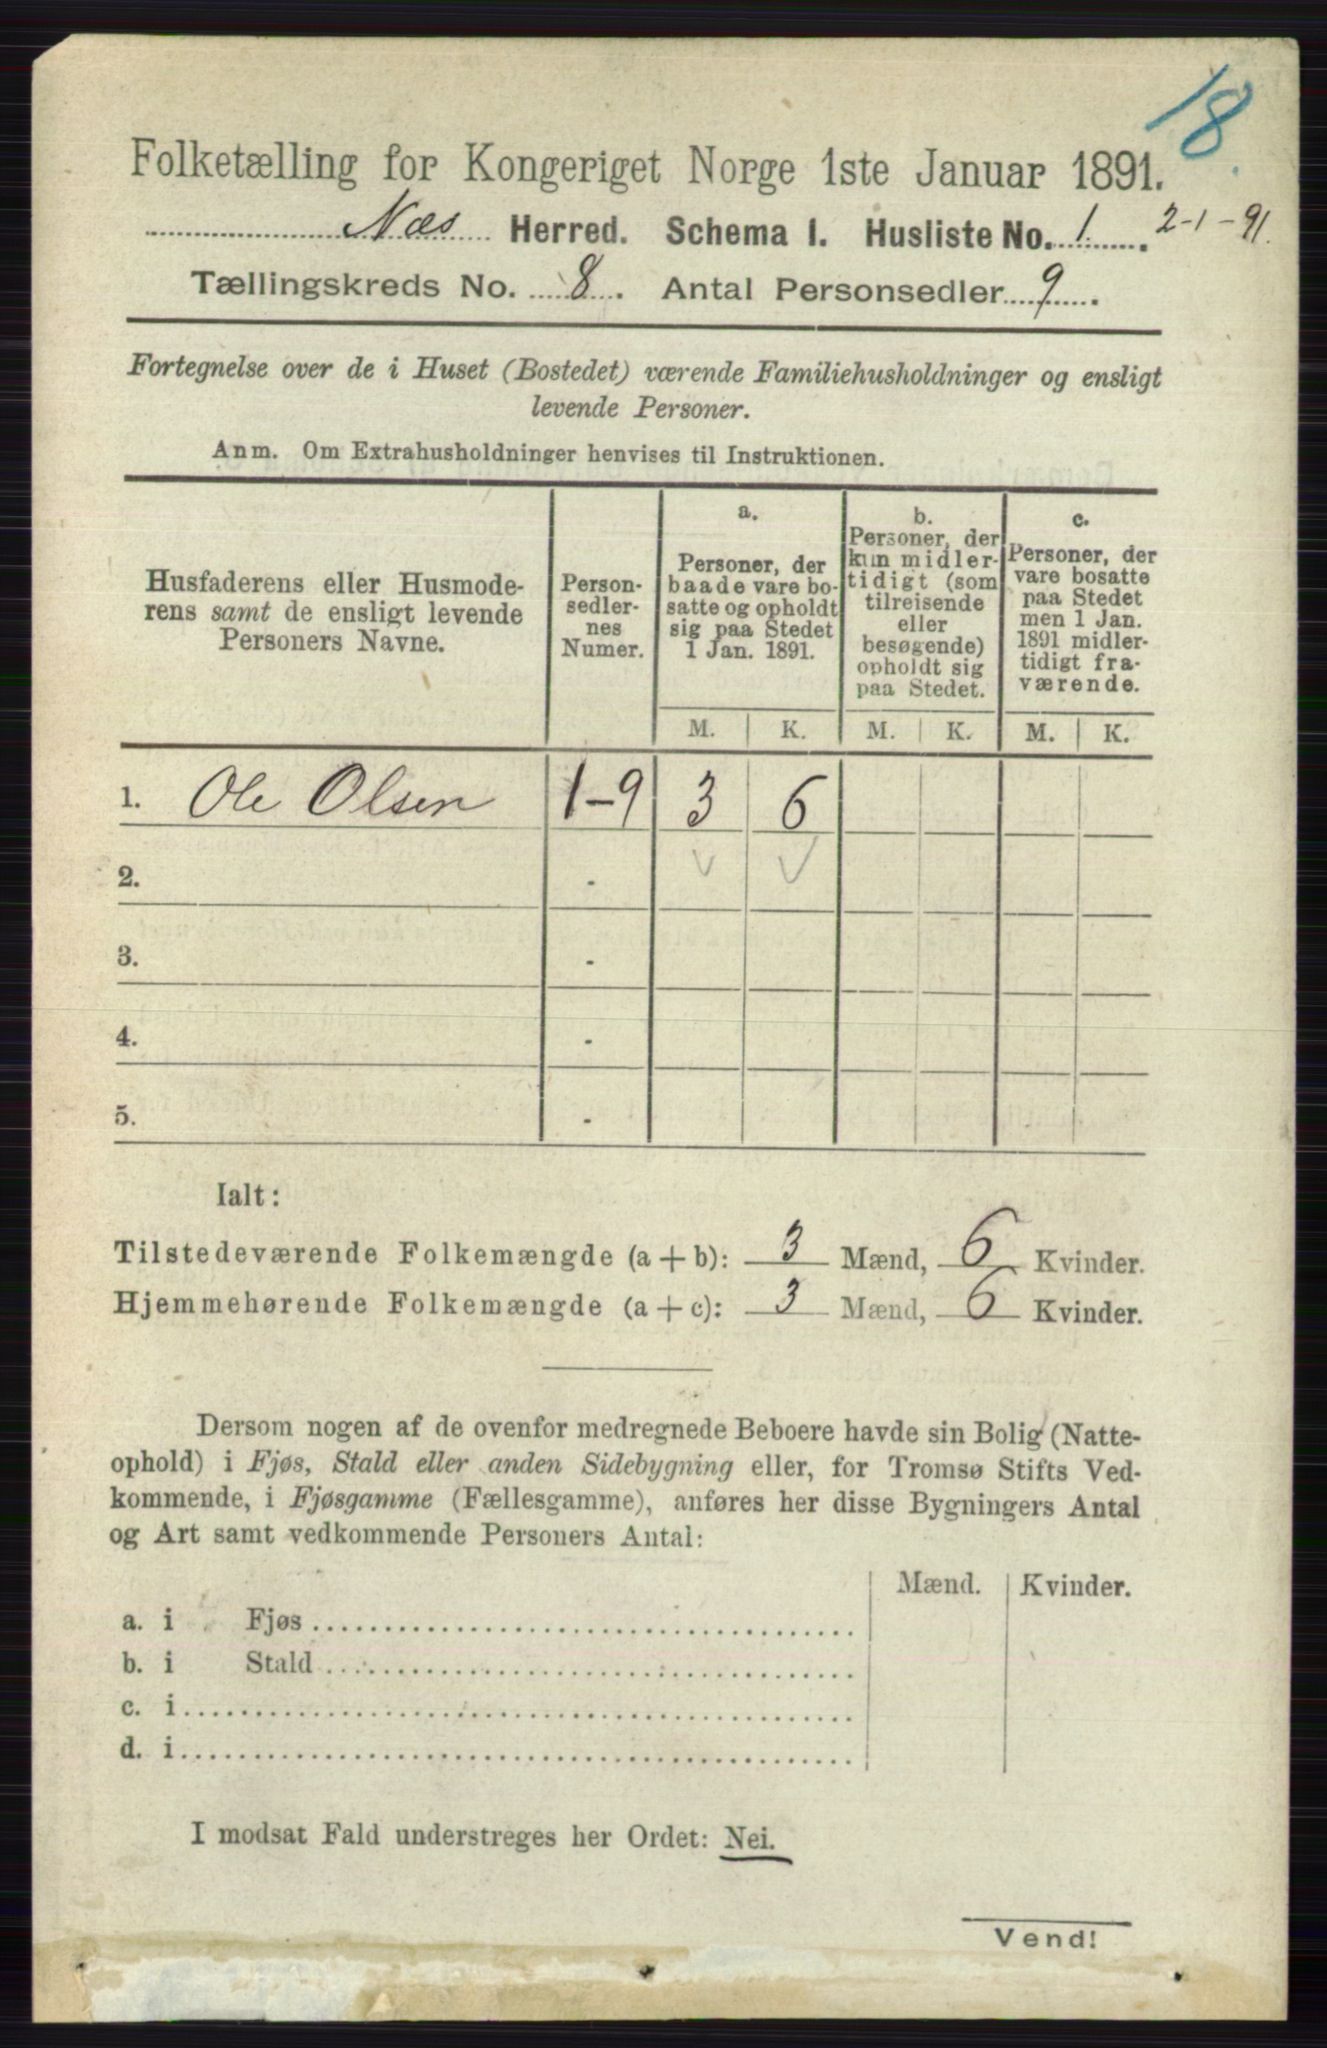 18.
Folketælling for Kongeriget Norge 1ste Januar 1891.
Næs Herred. Schema I. Husliste No. 1. 2-1-91.
Tællingskreds No. 8. Antal Personsedler 9.
Fortegnelse over de i Huset (Bostedet) værende Familiehusholdninger og ensligt
levende Personer.
Anm. Om Extrahusholdninger henvises til Instruktionen.
Husfaderens eller Husmode-
rens samt de ensligt levende
Personers Navne.
Person-
sedler-
nes
Numer.
a.
Personer, der
baade vare bo-
satte og opholdt
sig paa Stedet
1 Jan. 1891.
b.
Personer, der
kun midler-
tidigt (som
tilreisende
eller
besøgende)
opholdt sig
paa Stedet.
c.
Personer, der
vare bosatte
paa Stedet
men 1 Jan.
1891 midler-
tidigt fra-
værende.
M. K. M. K. M. K.
1. Ole Olsen 1-9 3 6
2. -
3. -
4. -
5. -
Ialt:
Tilstedeværende Folkemængde (a + b): 3 Mænd, 6 Kvinder.
Hjemmehørende Folkemængde (a + c): 3 Mænd, 6 Kvinder.
Dersom nogen af de ovenfor medregnede Beboere havde sin Bolig (Natte-
ophold) i Fjøs, Stald eller anden Sidebygning eller, for Tromsø Stifts Ved-
kommende, i Fjøsgamme (Fællesgamme), anføres her disse Bygningers Antal
og Art samt vedkommende Personers Antal:
Mænd. Kvinder.
a. i Fjøs
b. i Stald
c. i
d. i
I modsat Fald understreges her Ordet: Nei.
Vend!